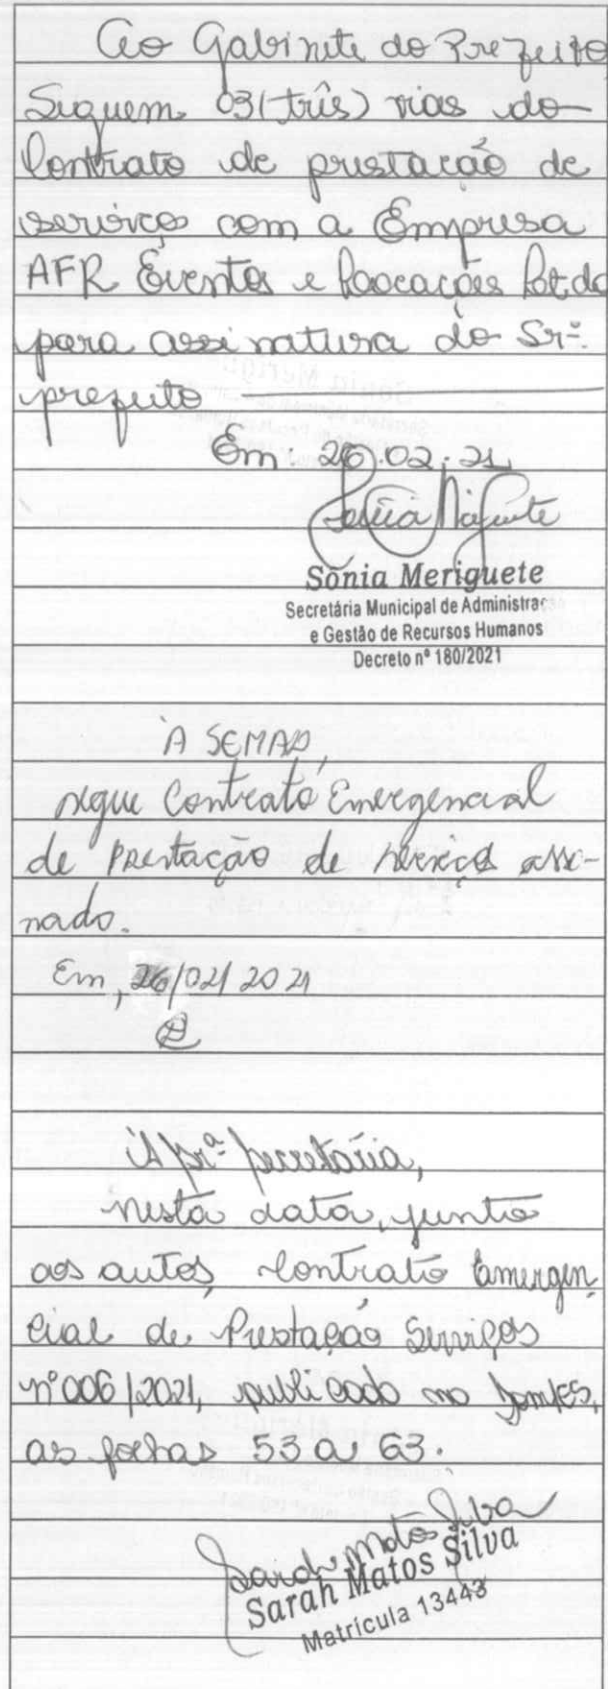 Ao Gabinete do Prefeito
Seguem 03 (três) vias do
Contrato de prestação de
serviços com a Empresa
AFR Eventos e Locações Ltda
para assinatura do Srº.
prefeito
Em: 26.02.21
Sônia Meriguete
Secretária Municipal de Administraç
e Gestão de Recursos Humanos
Decreto nº 180/2021
À SEMAD,
segue Contrato Emergencial
de Prestação de serviços assi-
nado.
Em, 26/02/2021
À srª secretária,
nesta data, junto
aos autos, Contrato Emergen
cial de Prestação Serviços
nº006/2021, publicado no DOM/ES,
as folhas 53 a 63.
Sarah Matos Silva
Sarah Matos Silva
Matrícula 13443